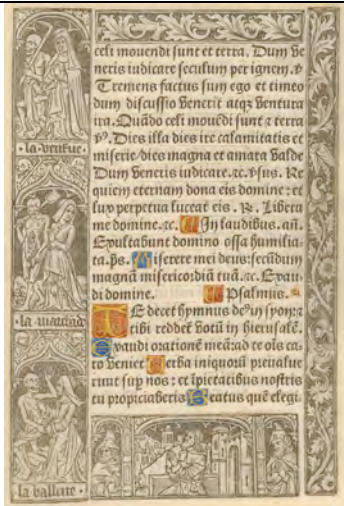 celi mouendi sunt et terra. Dum ve
neris iudicare seculum per ignem. ℣
Tremens factus sum ego et timeo
dum discussio venerit atqz ventura
ira. Quādo celi mouēdi sunt ⁊ terra
℣. Dies illa dies ire calamitatis et
miserie/dies magna et amara valde
Dum veneris iudicare.⁊c. ṽsus. Re
quiem eternam dona eis domine: et
lux perpetua luceat eis. ℟. Libera
me domine.⁊c. In laudibus. an̄.
Exultabunt domino ossa humilia-
ta. p̄s. Miserere mei deus: secūdum
magnā misericordiā tuā.⁊c. Exau
di domine. Psalmus.
TE decet hymnus de⁹ in syon: ⁊
tibi reddet̄ votū in hierusalē.
Exaudi orationē meā: ad te oīs ca-
ro veniet Verba iniquorū preualue
runt sup nos: et īpietatibus nostris
tu propiciaberis Beatus quē elegi-
·la·veufue·
·la·marchāde
la ballliue·